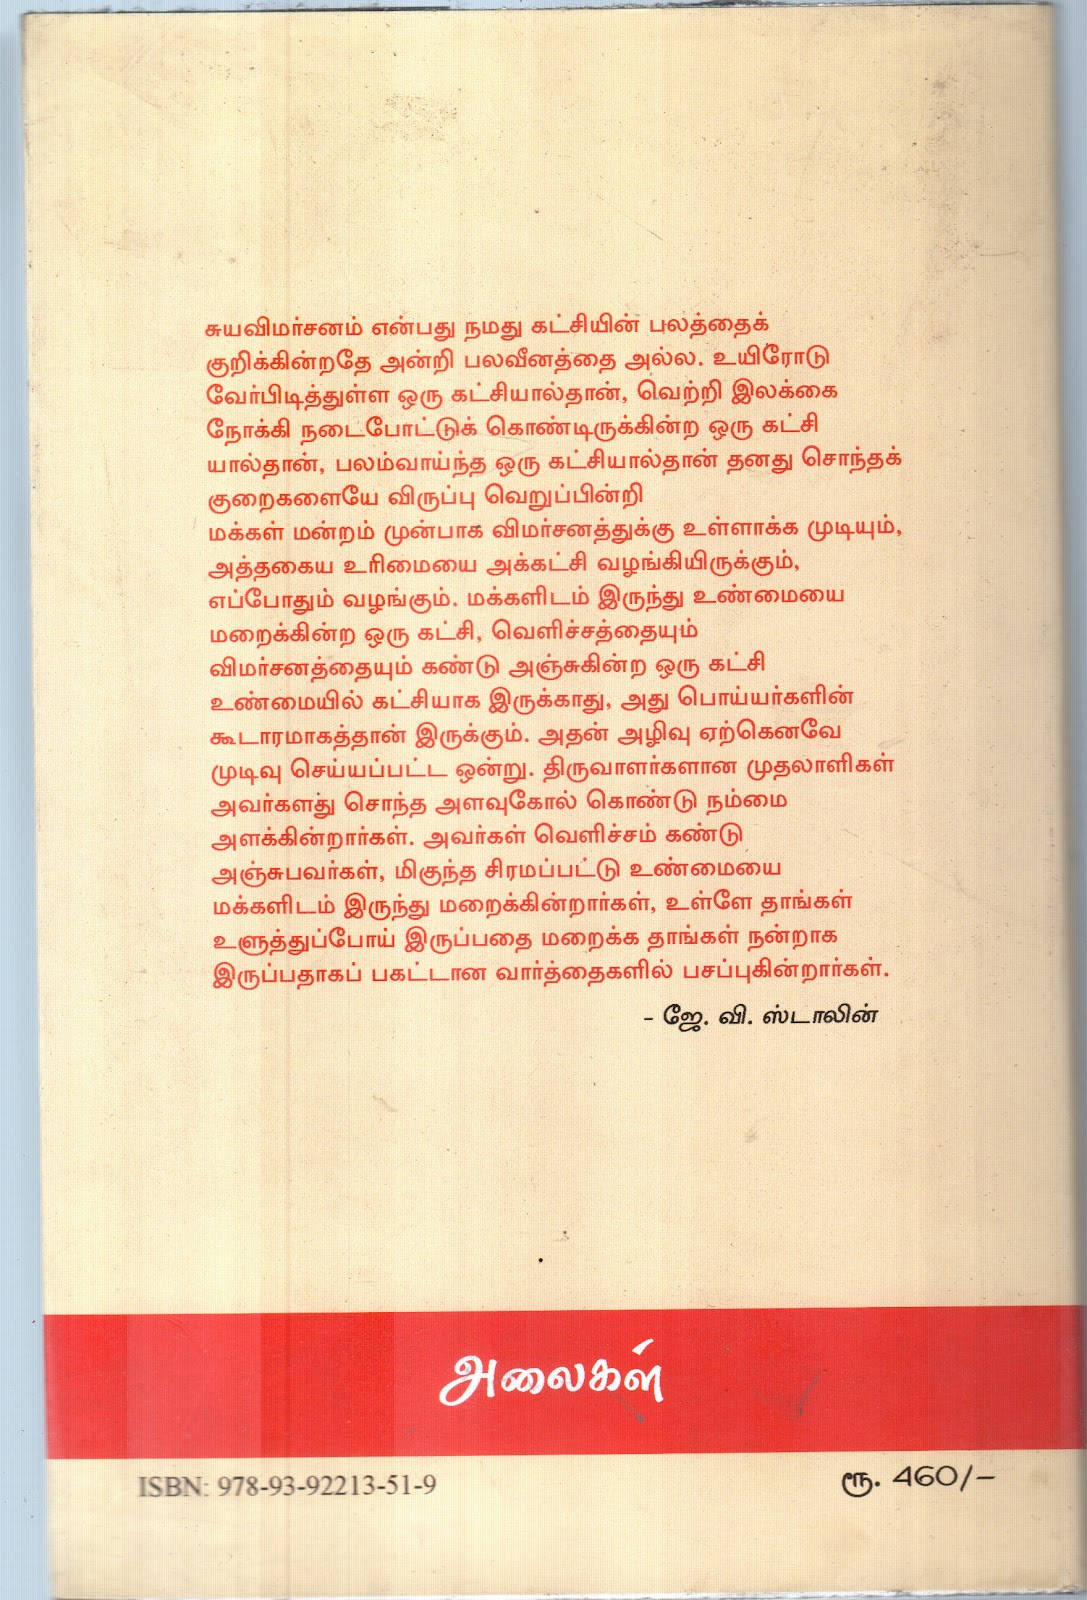 சுயவிமர்சனம் என்பது நமது கட்சியின் பலத்தைக்
குறிக்கின்றதே அன்றி பலவீனத்தை அல்ல. உயிரோடு
வேர்பிடித்துள்ள ஒரு கட்சியால்தான், வெற்றி இலக்கை
நோக்கி நடைபோட்டுக் கொண்டிருக்கின்ற ஒரு கட்சி
யால்தான், பலம்வாய்ந்த ஒரு கட்சியால்தான் தனது சொந்தக்
குறைகளையே விருப்பு வெறுப்பின்றி
மக்கள் மன்றம் முன்பாக விமர்சனத்துக்கு உள்ளாக்க முடியும்,
அத்தகைய உரிமையை அக்கட்சி வழங்கியிருக்கும்,
எப்போதும் வழங்கும். மக்களிடம் இருந்து உண்மையை
மறைக்கின்ற ஒரு கட்சி, வெளிச்சத்தையும்
விமர்சனத்தையும் கண்டு அஞ்சுகின்ற ஒரு கட்சி
உண்மையில் கட்சியாக இருக்காது, அது பொய்யர்களின்
கூடாரமாகத்தான் இருக்கும். அதன் அழிவு ஏற்கெனவே
முடிவு செய்யப்பட்ட ஒன்று. திருவாளர்களான முதலாளிகள்
அவர்களது சொந்த அளவுகோல் கொண்டு நம்மை
அளக்கின்றார்கள். அவர்கள் வெளிச்சம் கண்டு
அஞ்சுபவர்கள், மிகுந்த சிரமப்பட்டு உண்மையை
மக்களிடம் இருந்து மறைக்கின்றார்கள், உள்ளே தாங்கள்
உளுத்துப்போய் இருப்பதை மறைக்க தாங்கள் நன்றாக
இருப்பதாகப் பகட்டான வார்த்தைகளில் பசப்புகின்றார்கள்.
- ஜே. வி. ஸ்டாலின்
அலைகள்
ISBN: 978-93-92213-51-9
ரூ. 460/–